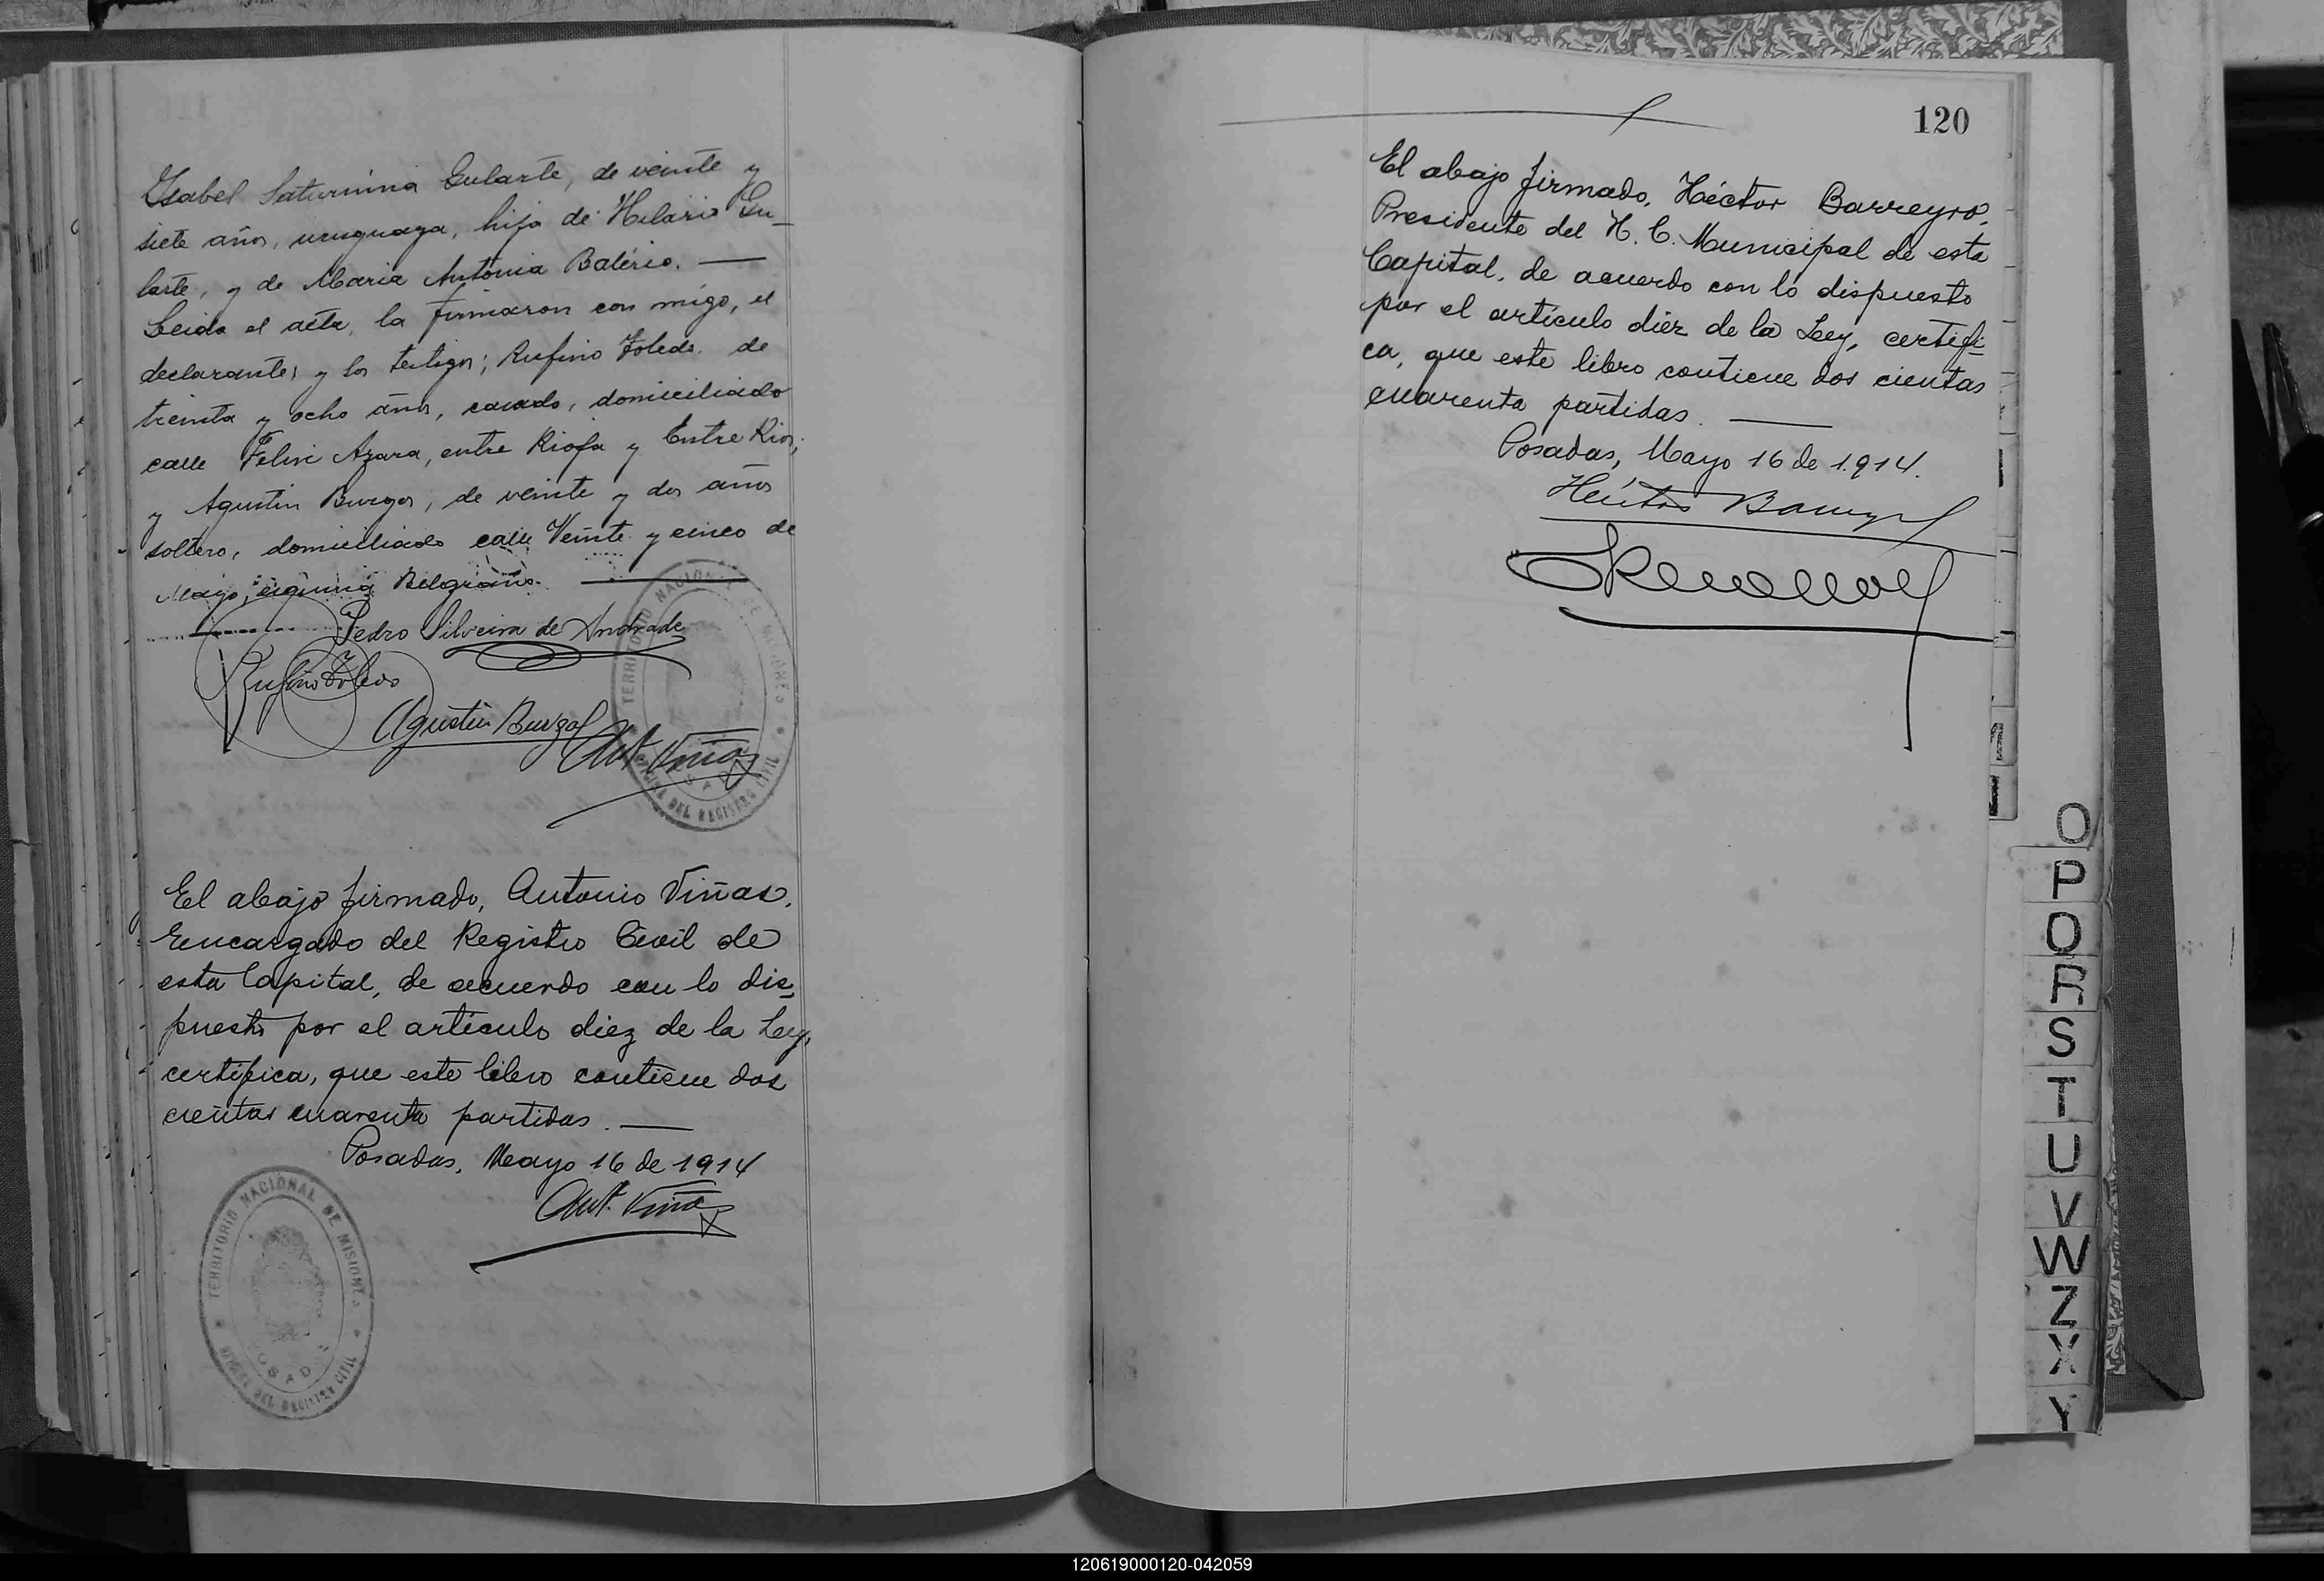 Ysabel Saturnina Gularte, de veinte y
siete años, uruguaya, hija de Hilario Gu-
larte, y de Maria Antonia Balério. —
Leida el acta, la firmaron con migo, el
declarante, y los testigos; Rufino Toledo, de
treinta y ocho años, casado, domiciliado
calle Felix Azara, entre Rioja y Entre Rios;
y Agustin Burgos, de veinte y dos años
soltero, domiciliado calle Veinte y cinco de
Mayo, esquina Belgrano. —
Pedro Silveira de Andrade
Rufino Toledo
Agustin Burgos
Ant. Viñas
TERRITORIO NACIONAL DE MISIONES
OFICINA DEL REGISTRO CIVIL
El abajo firmado, Antonio Viñas,
Encargado del Registro Civil de
esta Capital, de acuerdo con lo dis-
puesto por el artículo diez de la Ley,
certifica, que este libro contiene dos
cientas cuarenta partidas. —
Posadas, Mayo 16 de 1914
Ant. Viñas
TERRITORIO NACIONAL DE MISIONES
POSADAS
OFICINA DEL REGISTRO CIVIL
120
El abajo firmado, Héctor Barreyro,
Presidente del H. C. Municipal de esta
Capital, de acuerdo con lo dispuesto
por el artículo diez de la Ley, certifi-
ca, que este libro contiene dos cientas
cuarenta partidas. —
Posadas, Mayo 16 de 1.914.
Héctor Barreyro
O
P
Q
R
S
T
U
V
W
Z
X
Y
120619000120-042059